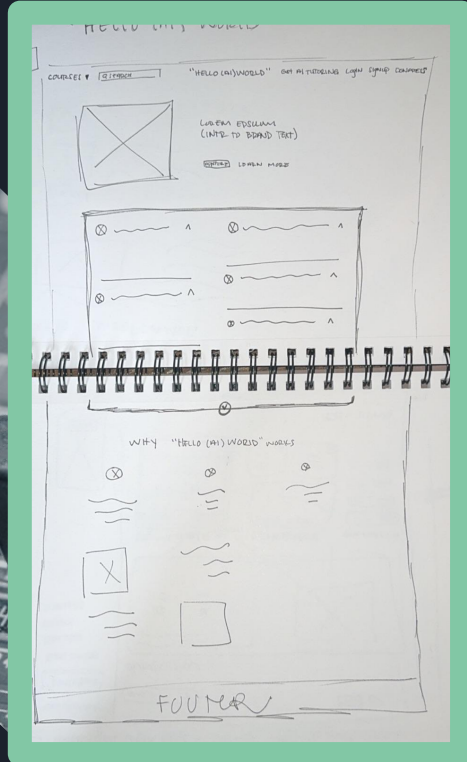 HELLO (AI) WORLD
COURSES ▼ SEARCH "HELLO (AI) WORLD" GET AI TUTORING LOGIN SIGNUP
LOREM EPSIUM
(INTR TO BRAND TEXT)
LEARN MORE
WHY "HELLO (AI) WORLD" WORKS
FOOTER